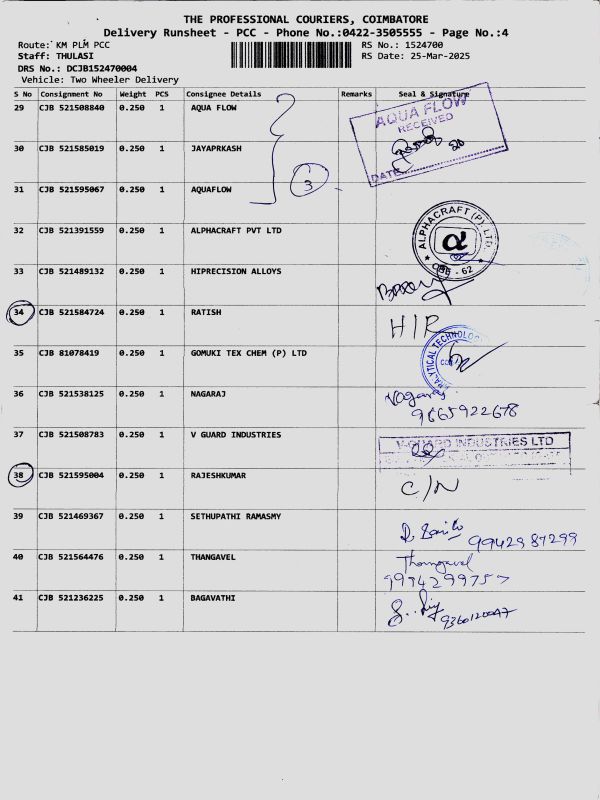 THE PROFESSIONAL COURIERS, COIMBATORE
Delivery Runsheet - PCC - Phone No.:0422-3505555 - Page No.:4
Route: KM PLM PCC RS No.: 1524700
Staff: THULASI RS Date: 25-Mar-2025
DRS No.: DCJB152470004
Vehicle: Two Wheeler Delivery
S No Consignment No Weight PCS Consignee Details Remarks Seal & Signature
29 CJB 521508840 0.250 1 AQUA FLOW
AQUA FLOW
RECEIVED
30 CJB 521585019 0.250 1 JAYAPRKASH
DATE
31 CJB 521595067 0.250 1 AQUAFLOW
3
32 CJB 521391559 0.250 1 ALPHACRAFT PVT LTD
ALPHACRAFT (P) LTD.
α
CBE - 62
33 CJB 521489132 0.250 1 HIPRECISION ALLOYS
34 CJB 521584724 0.250 1 RATISH
H/R
35 CJB 81078419 0.250 1 GOMUKI TEX CHEM (P) LTD
36 CJB 521538125 0.250 1 NAGARAJ
Nagaraj
9665922678
37 CJB 521508783 0.250 1 V GUARD INDUSTRIES
V-GUARD INDUSTRIES LTD
38 CJB 521595004 0.250 1 RAJESHKUMAR
C/N
39 CJB 521469367 0.250 1 SETHUPATHI RAMASMY
9942987299
40 CJB 521564476 0.250 1 THANGAVEL
Thangavel
9994299757
41 CJB 521236225 0.250 1 BAGAVATHI